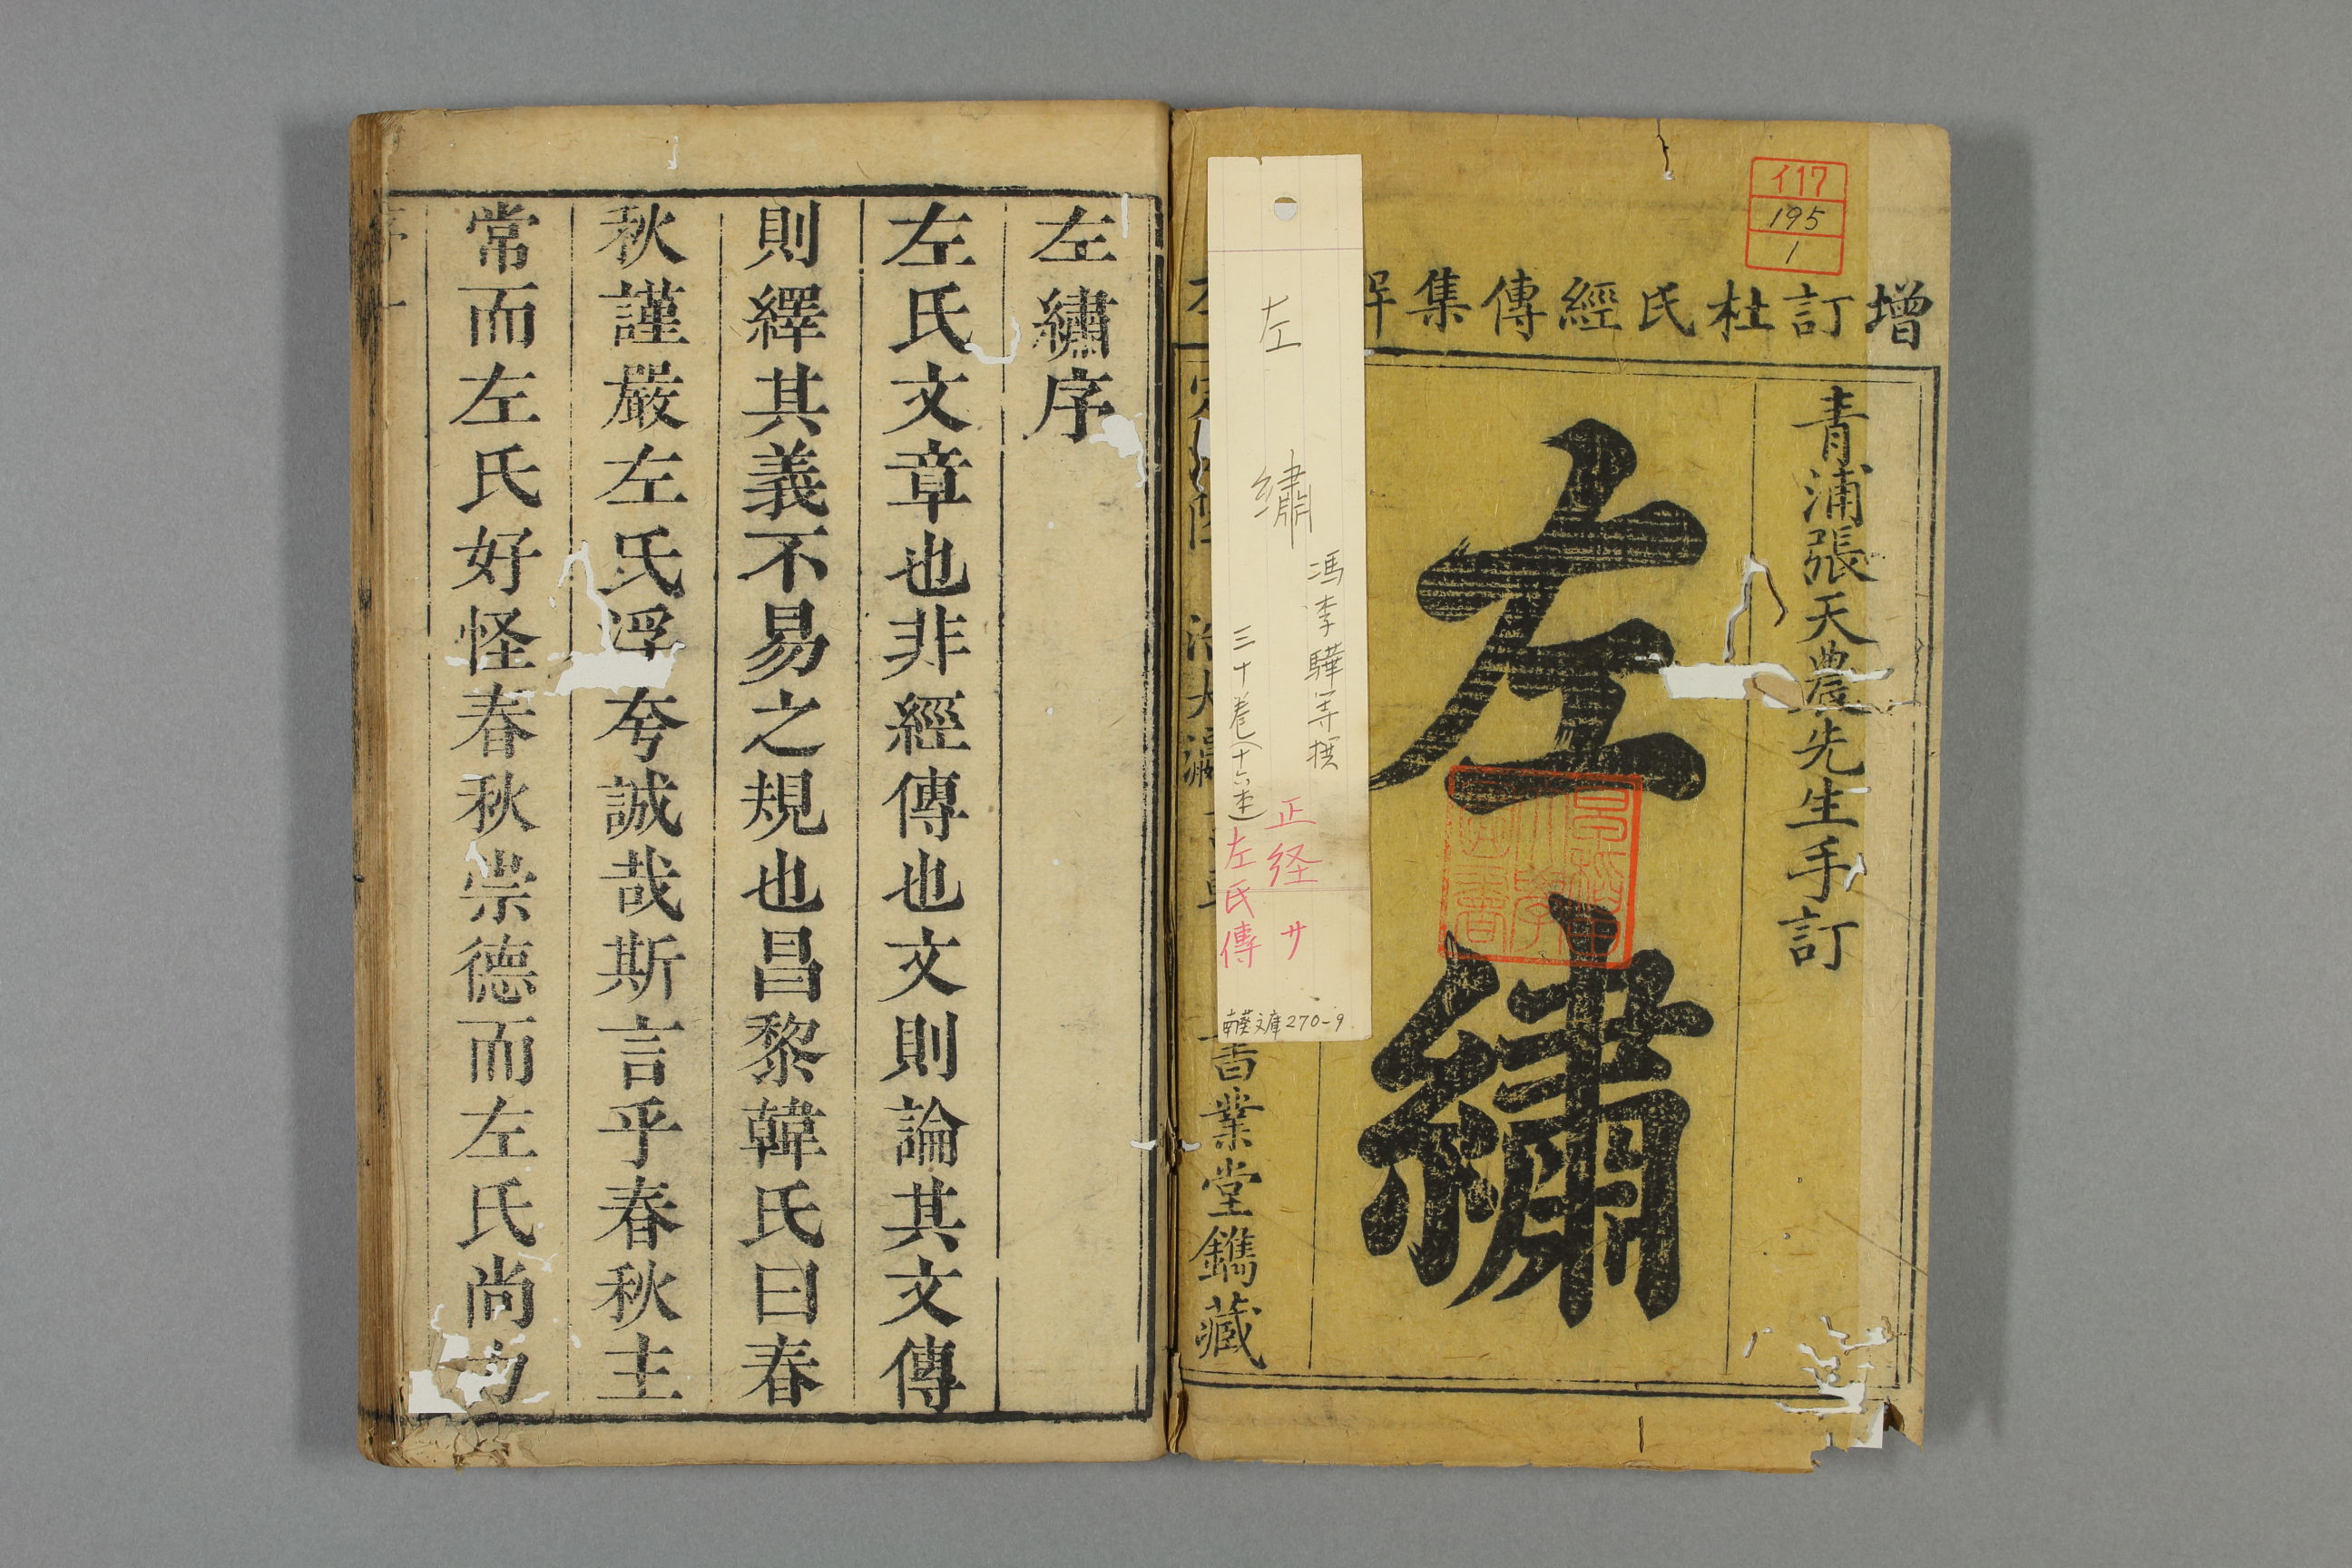 イ17
195
1
增訂杜氏經傳集解
青浦張天農先生手訂
左繡
書業堂鐫藏
左繡
馮李驊等撰
三十巻(十六本)
正経 サ
左氏傳
南葵文庫270-9
左繡序
左氏文章也非經傳也文則論其文傳
則繹其義不易之規也昌黎韓氏曰春
秋謹嚴左氏浮夸誠哉斯言乎春秋主
常而左氏好怪春秋崇德而左氏尚力